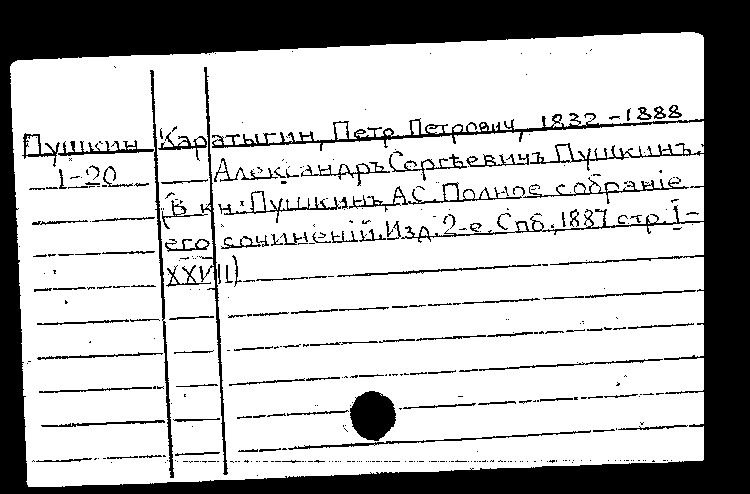 Пушкин Каратыгин, Петр Петрович, 1832-1888
1-20 Александръ Сергѣевичъ Пушкинъ.
(В кн.: Пушкинъ, А.С. Полное собранiе
его сочиненiй. Изд. 2-е. Спб., 1887. стр. I-
XXVIII)